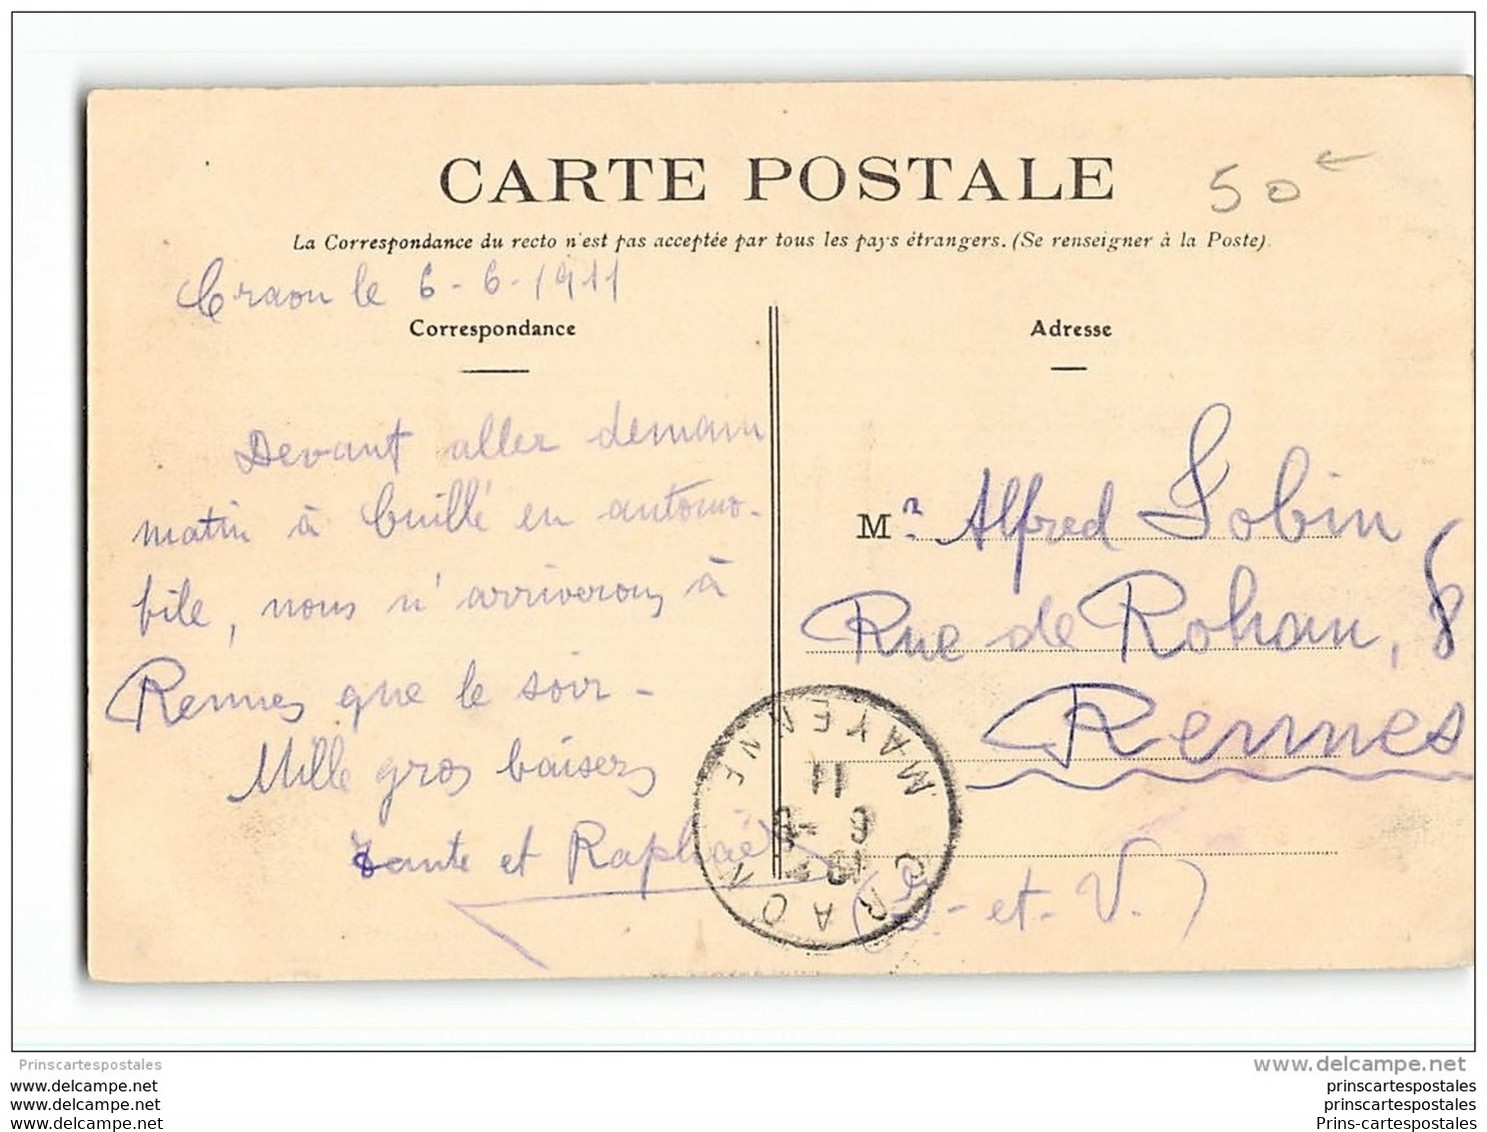 CARTE POSTALE
50
La Correspondance du recto n'est pas acceptée par tous les pays étrangers. (Se renseigner à la Poste).
Craon le 6-6-1911
Correspondance
Devant aller demain
matin à Cuillé en automo-
bile, nous n'arriverons à
Rennes que le soir -
Mille gros baisers
Tante et Raphaël
Adresse
Mr Alfred Jobin
Rue de Rohan, 8
Rennes
(I.-et-V.)
CRAON
MAYENNE
6 -6
11
Prinscartespostales
www.delcampe.net
www.delcampe.net
www.delcampe.net
www.delcampe.net
prinscartespostales
prinscartespostales
Prins-cartespostales